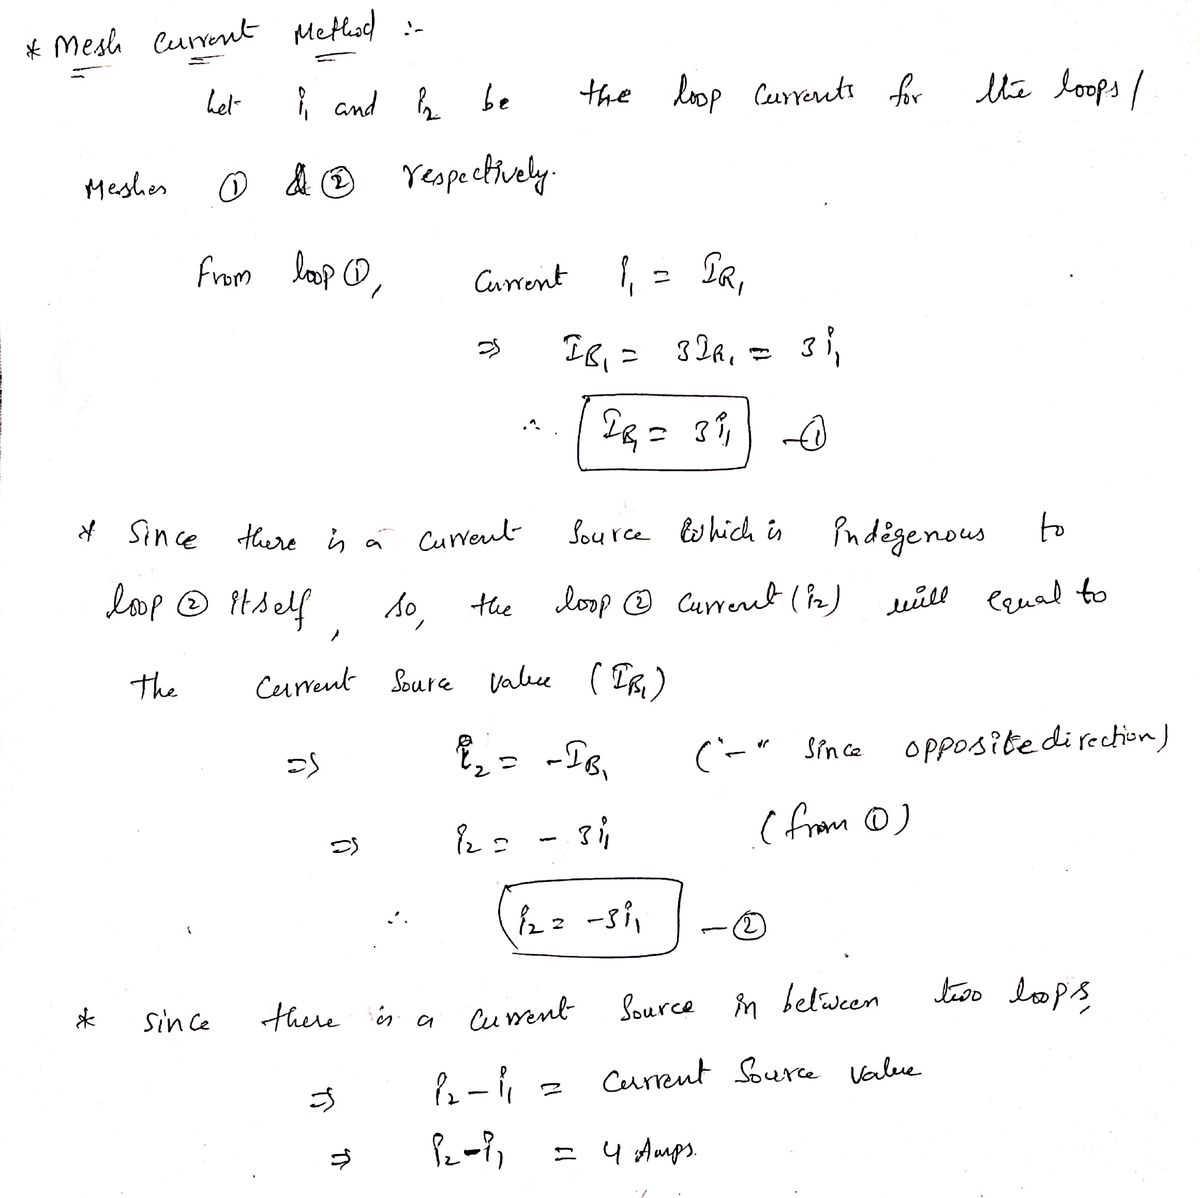 * Mesh Current Method :-
Let i₁ and i₂ be the loop currents for the loops/
Meshes ① & ② respectively.
From loop ①, Current i₁ = I_R₁
⇒ I_B₁ = 3I_R₁ = 3i₁
∴ I_B₁ = 3i₁ —①
* Since there is a current source which is indigenous to
loop ② itself, so, the loop ② current (i₂) will equal to
the current source value (I_B₁)
⇒ i₂ = -I_B₁ ("-" since opposite direction)
⇒ i₂ = - 3i₁ (from ①)
∴ i₂ = -3i₁ —②
* since there is a current source in between two loops,
⇒ i₂-i₁ = current source value
⇒ i₂-i₁ = 4 Amps.